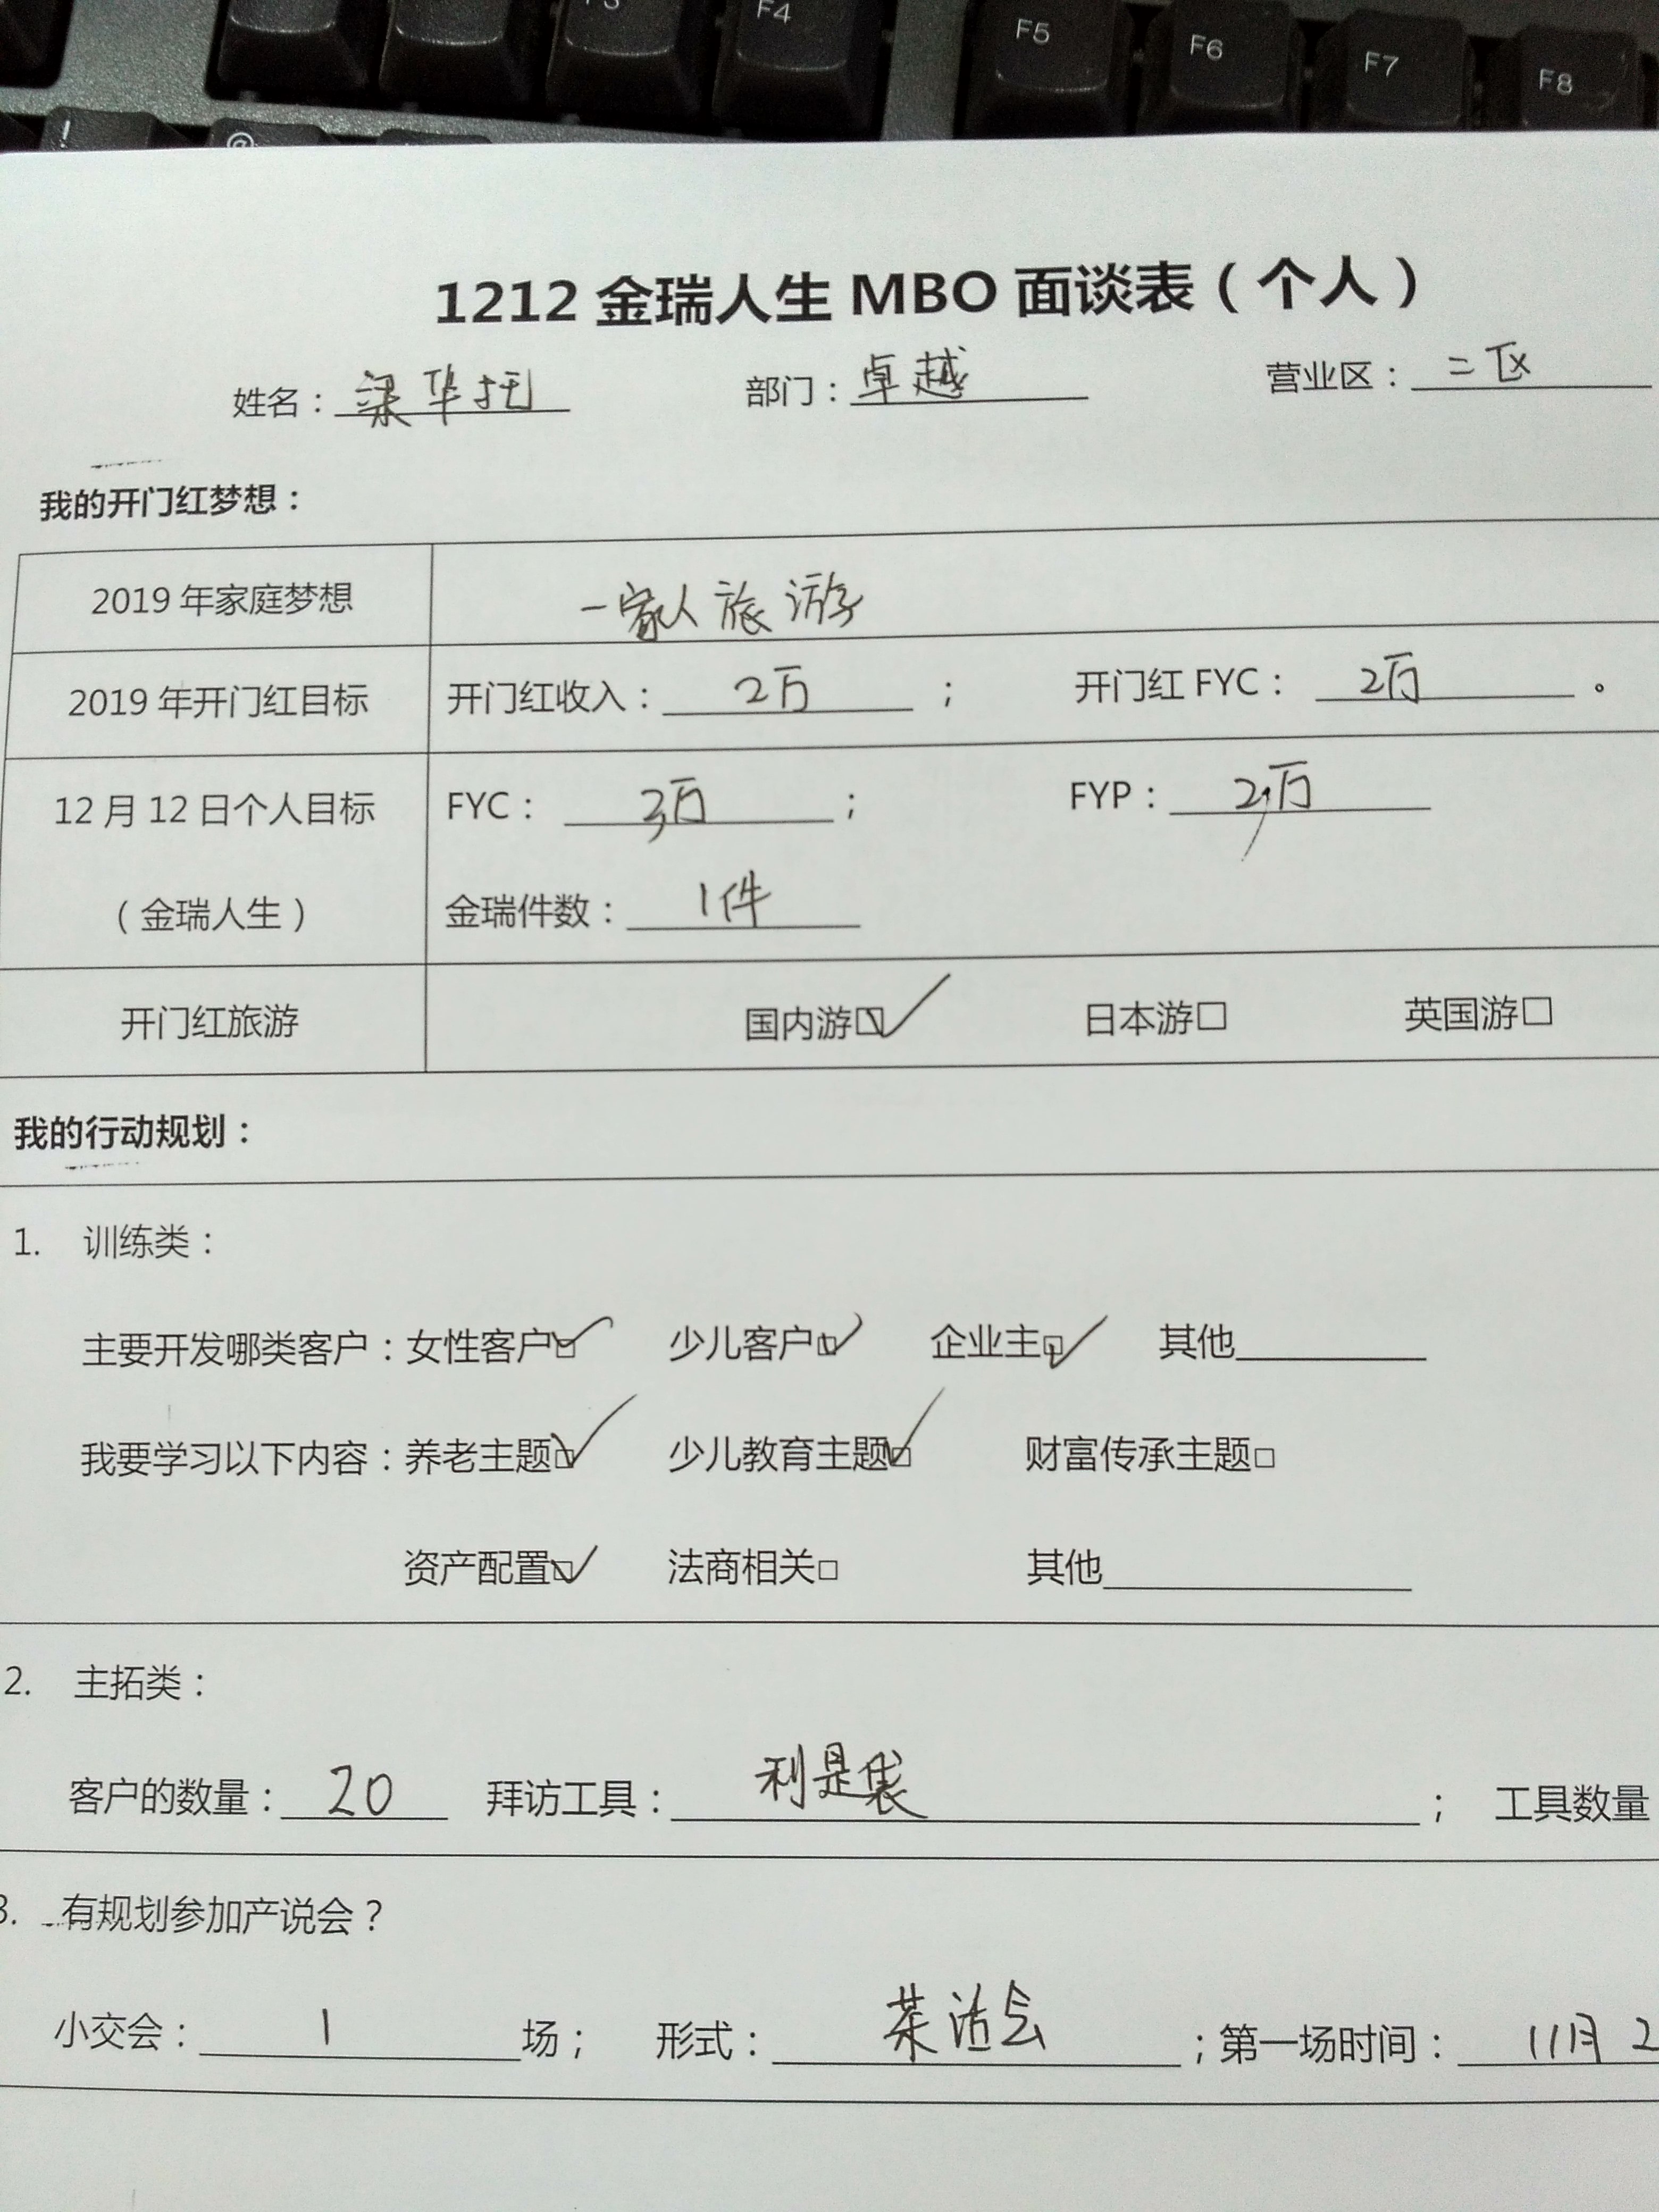 F3 F4 F5 F6 F7 F8
! @
1212 金瑞人生 MBO 面谈表(个人)
姓名:梁华托 部门:卓越 营业区:二区
我的开门红梦想:
2019 年家庭梦想 一家人旅游
2019 年开门红目标 开门红收入:2万; 开门红 FYC:2万。
12 月 12 日个人目标 FYC: 万; FYP: 万
(金瑞人生) 金瑞件数:1件
开门红旅游 国内游☑ 日本游□ 英国游□
我的行动规划:
1. 训练类:
主要开发哪类客户:女性客户☑ 少儿客户☑ 企业主☑ 其他
我要学习以下内容:养老主题☑ 少儿教育主题☑ 财富传承主题□
资产配置☑ 法商相关□ 其他
2. 主拓类:
客户的数量:20 拜访工具:利是袋; 工具数量
3. 有规划参加产说会?
小交会:1场; 形式:茶话会;第一场时间:11月2